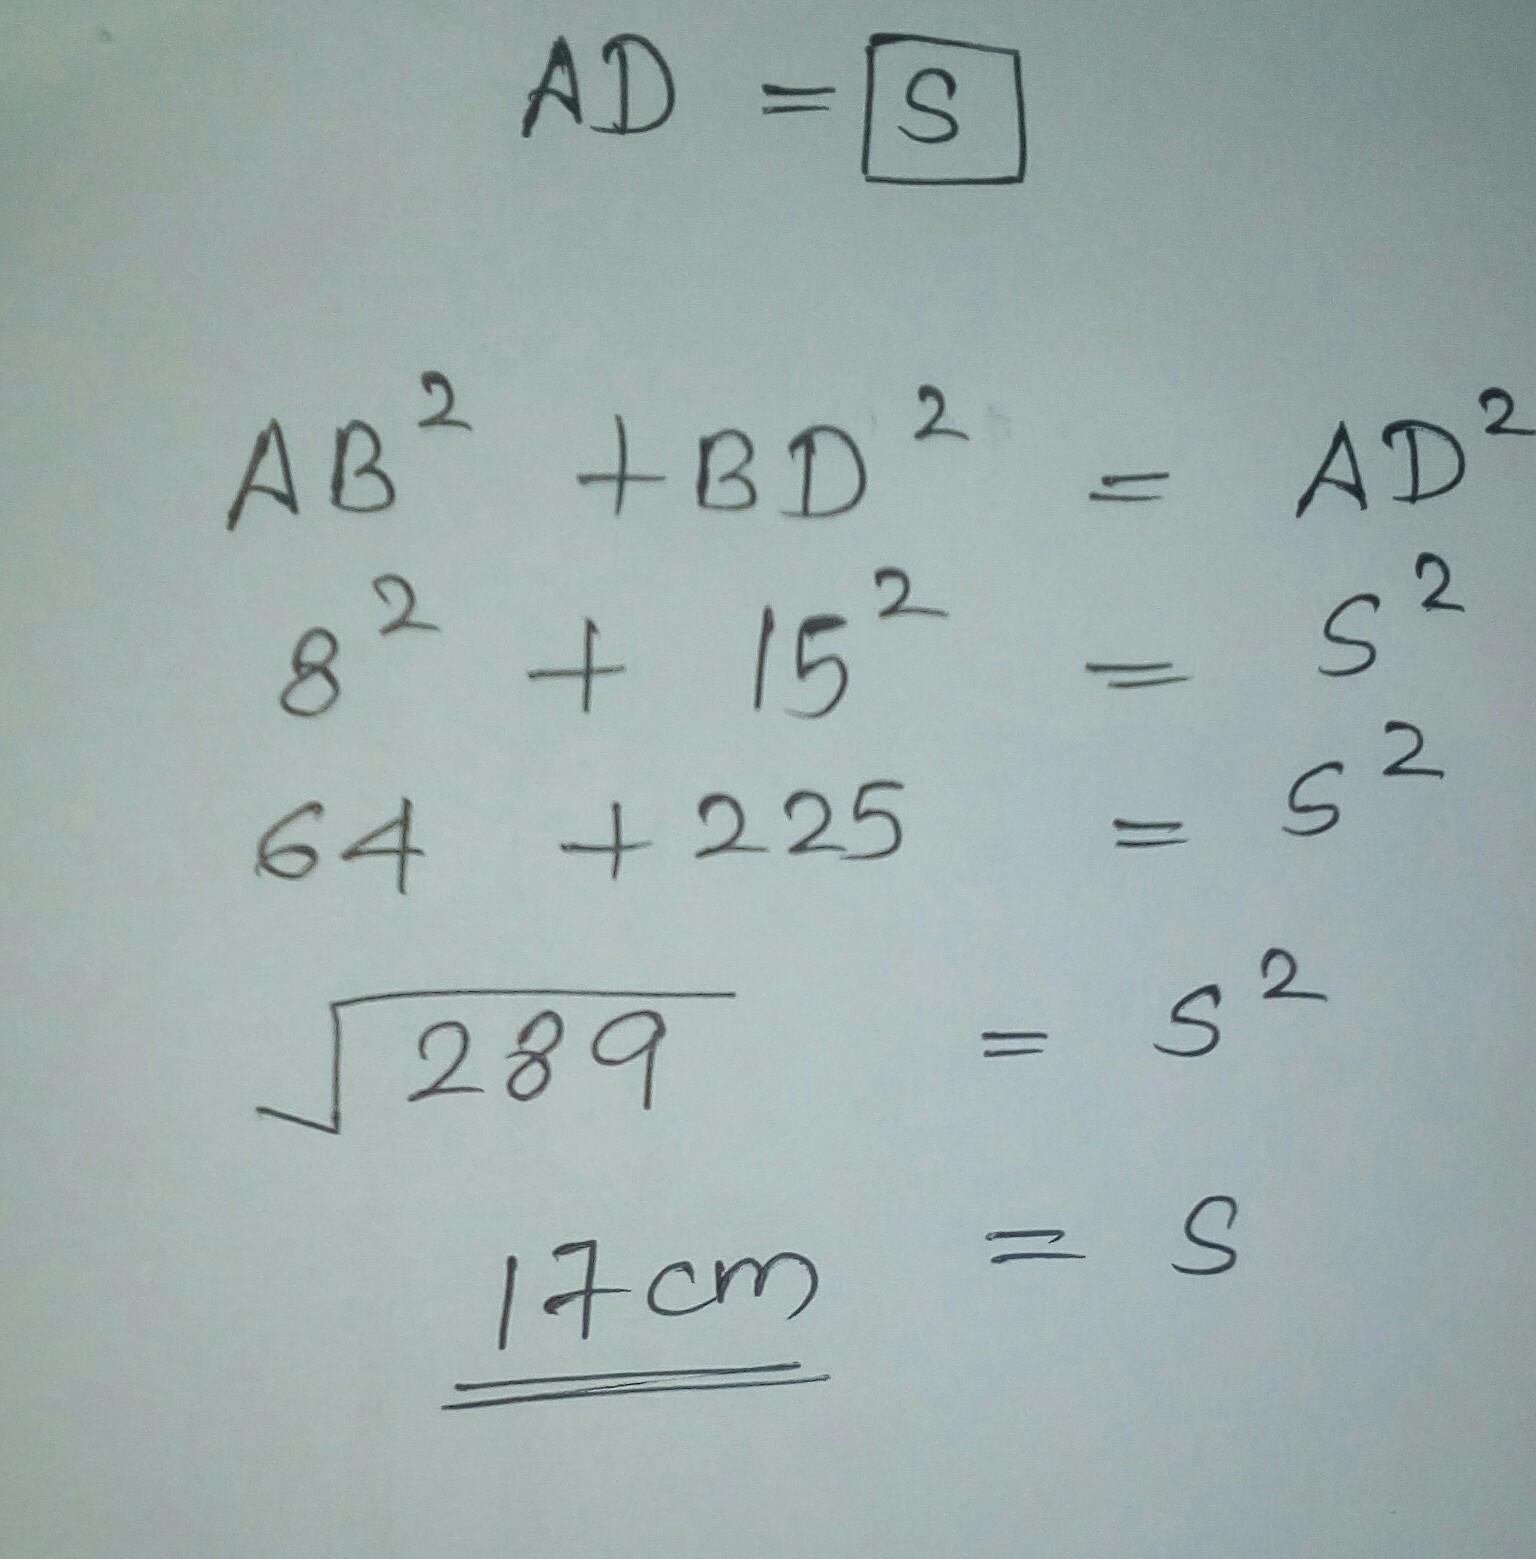 AD = S
AB² + BD² = AD²
8² + 15² = S²
64 + 225 = S²
√289 = S²
17cm = S